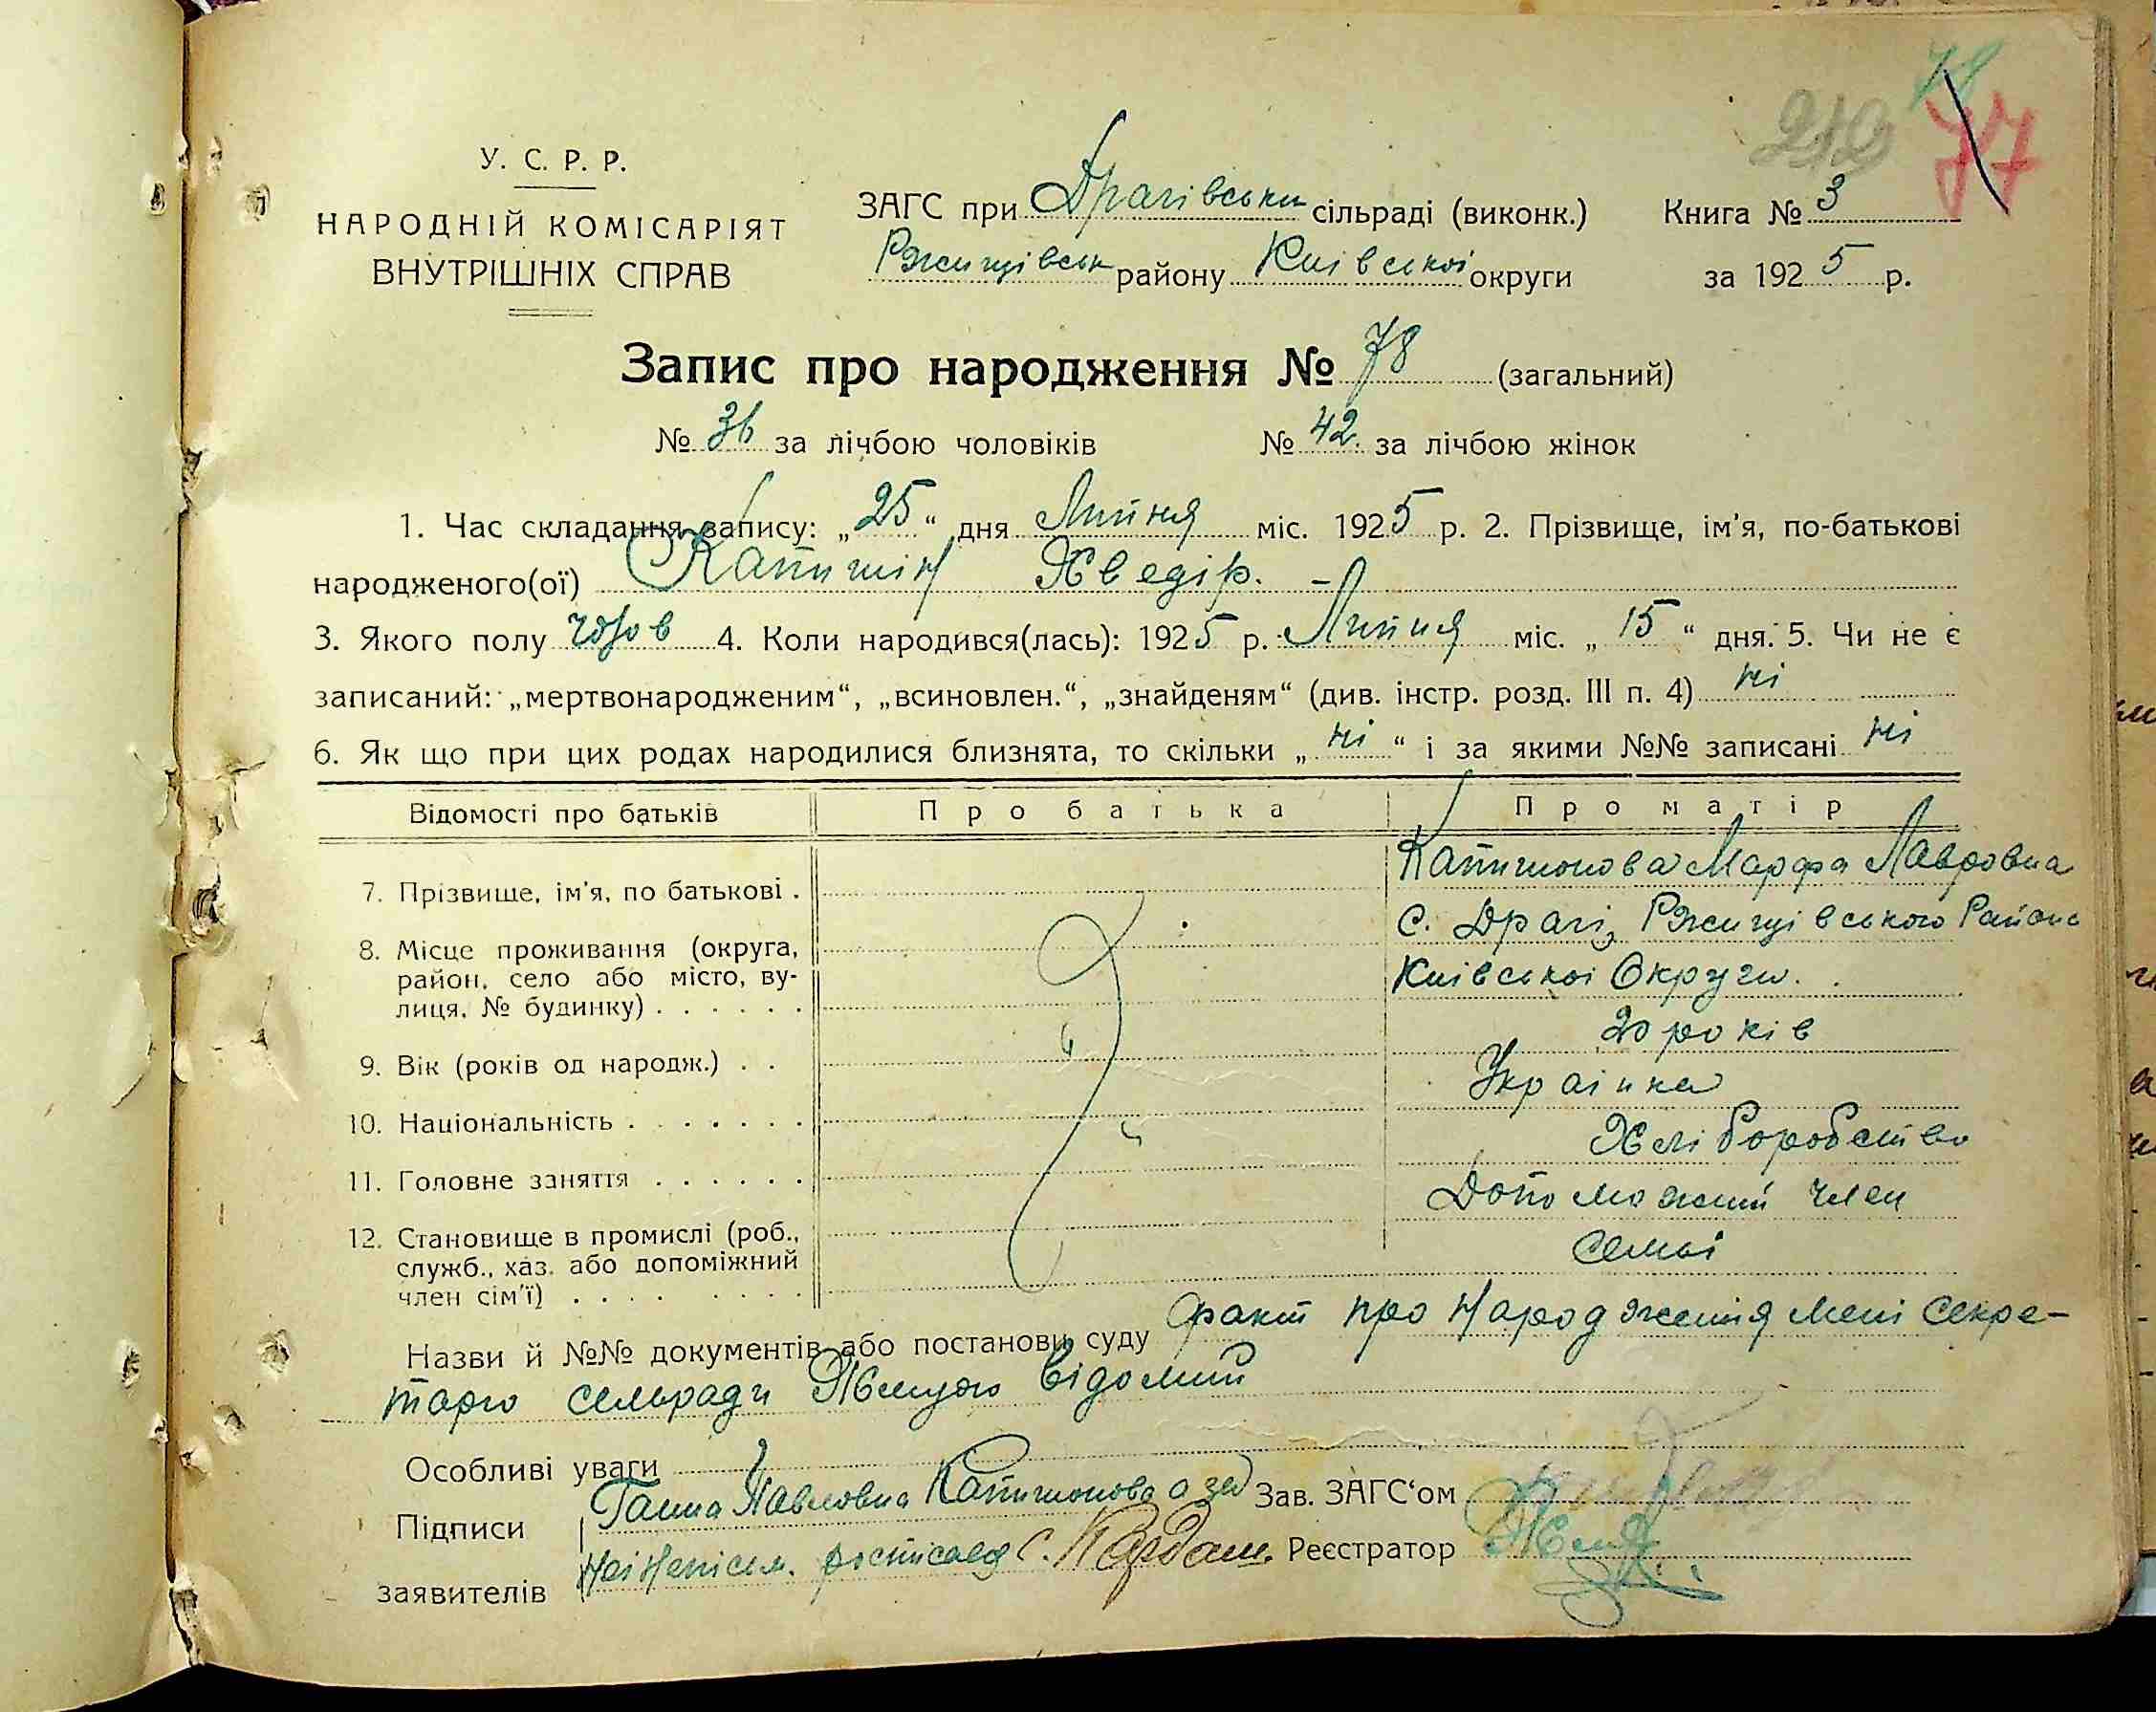 78
212 77
У. С. Р. Р.
НАРОДНІЙ КОМІСАРІЯТ
ВНУТРІШНІХ СПРАВ
ЗАГС при Драгівськи сільраді (виконк.) Книга № 3
Ржищівськ району Київської округи за 1925 р.
Запис про народження № 78 (загальний)
№ 36 за лічбою чоловіків № 42. за лічбою жінок
1. Час складання запису: „25“ дня Липня міс. 1925 р. 2. Прізвище, ім'я, по-батькові
народженого(ої) Капишін Хведір. –
3. Якого полу чолов 4. Коли народився(лась): 1925 р. Липня міс. „15“ дня. 5. Чи не є
записаний: „мертвонародженим“, „всиновлен.“, „знайденям“ (див. інстр. розд. III п. 4) ні
6. Як що при цих родах народилися близнята, то скільки „ні“ і за якими №№ записані ні
Відомості про батьків Про батька Про матір
7. Прізвище, ім'я, по батькові . Капишонова Марфа Лавровна
8. Місце проживання (округа, район, село або місто, ву-лиця, № будинку) . . . . . . С. Драгі, Ржищівського Району
Київскої Округи.
9. Вік (років од народж.) . . 20 років
10. Національність . . . . . . . Українка
11. Головне заняття . . . . . . Хліборобство
12. Становище в промислі (роб., служб., хаз. або допоміжний член сім'ї) . . . . Допоможний член
семьї
Назви й №№ документів або постанови суду Факт про народження мені Секре-
тарю сельради відомий
Особливі уваги
Підписи заявителів Ганна Павловна Капишонова а за Зав. ЗАГС‘ом
неї непісьм. ростісався С. Кардаш. Реєстратор